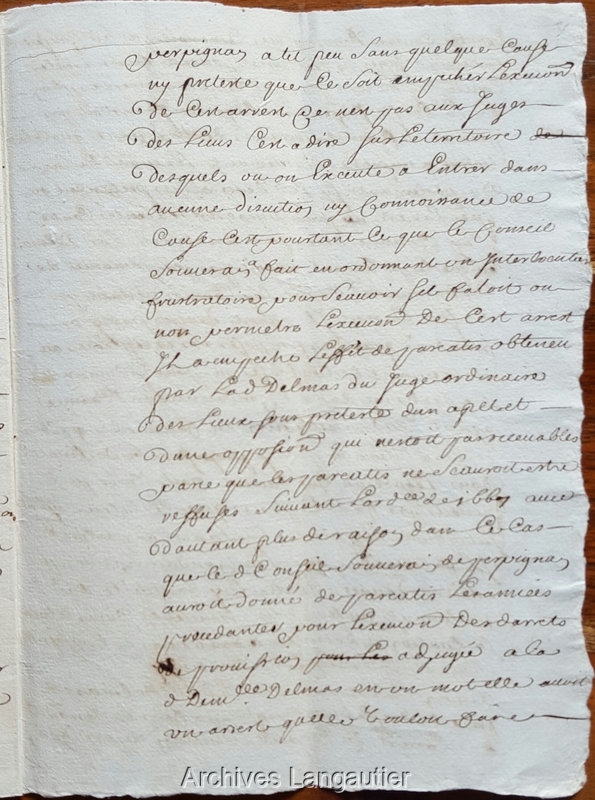 perpignan a til peu sans quelque cause
ny pretexte que ce soit empecher Lexecuon
De Cert arrest Ce nest pas aux Juges
des Lieus Cest a dire sur Le territoire de
desquels ou on Execute a Entrer dans
aucune discution ny Connoissance de
Cause Cest pourtant Ce que le Conseil
Souverain a fait en ordonnant un Interlocutoire
frustratoire pour Scavoir sil faloit ou
non permetre Lexecuon De Cert arrest
Il a empeche Leffit de pareatis obteneu
par Lad Delmas du Juge ordinaire
des Lieux sous pretexte dun apel et
dune opposion qui nestoit pas recevables
parce que les pareatis ne Scauroit estre
reffuses Suivant Lordce de 1667 avec
dautant plus de raison dans Ce Cas
que le d Conseil Souverain de perpignan
auroit donné de pareatis Les années
precedantes pour Lexecuon Des darrets
de provision pour Les adjugée a la
d Demlle Delmas en un mot elle avoit
un arrest quelle vouloit faire
Archives Langautier